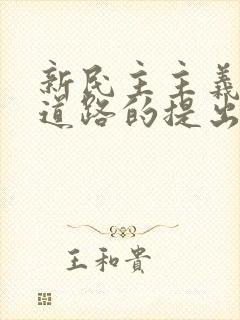 新民主主義
道路的提出
王和貴